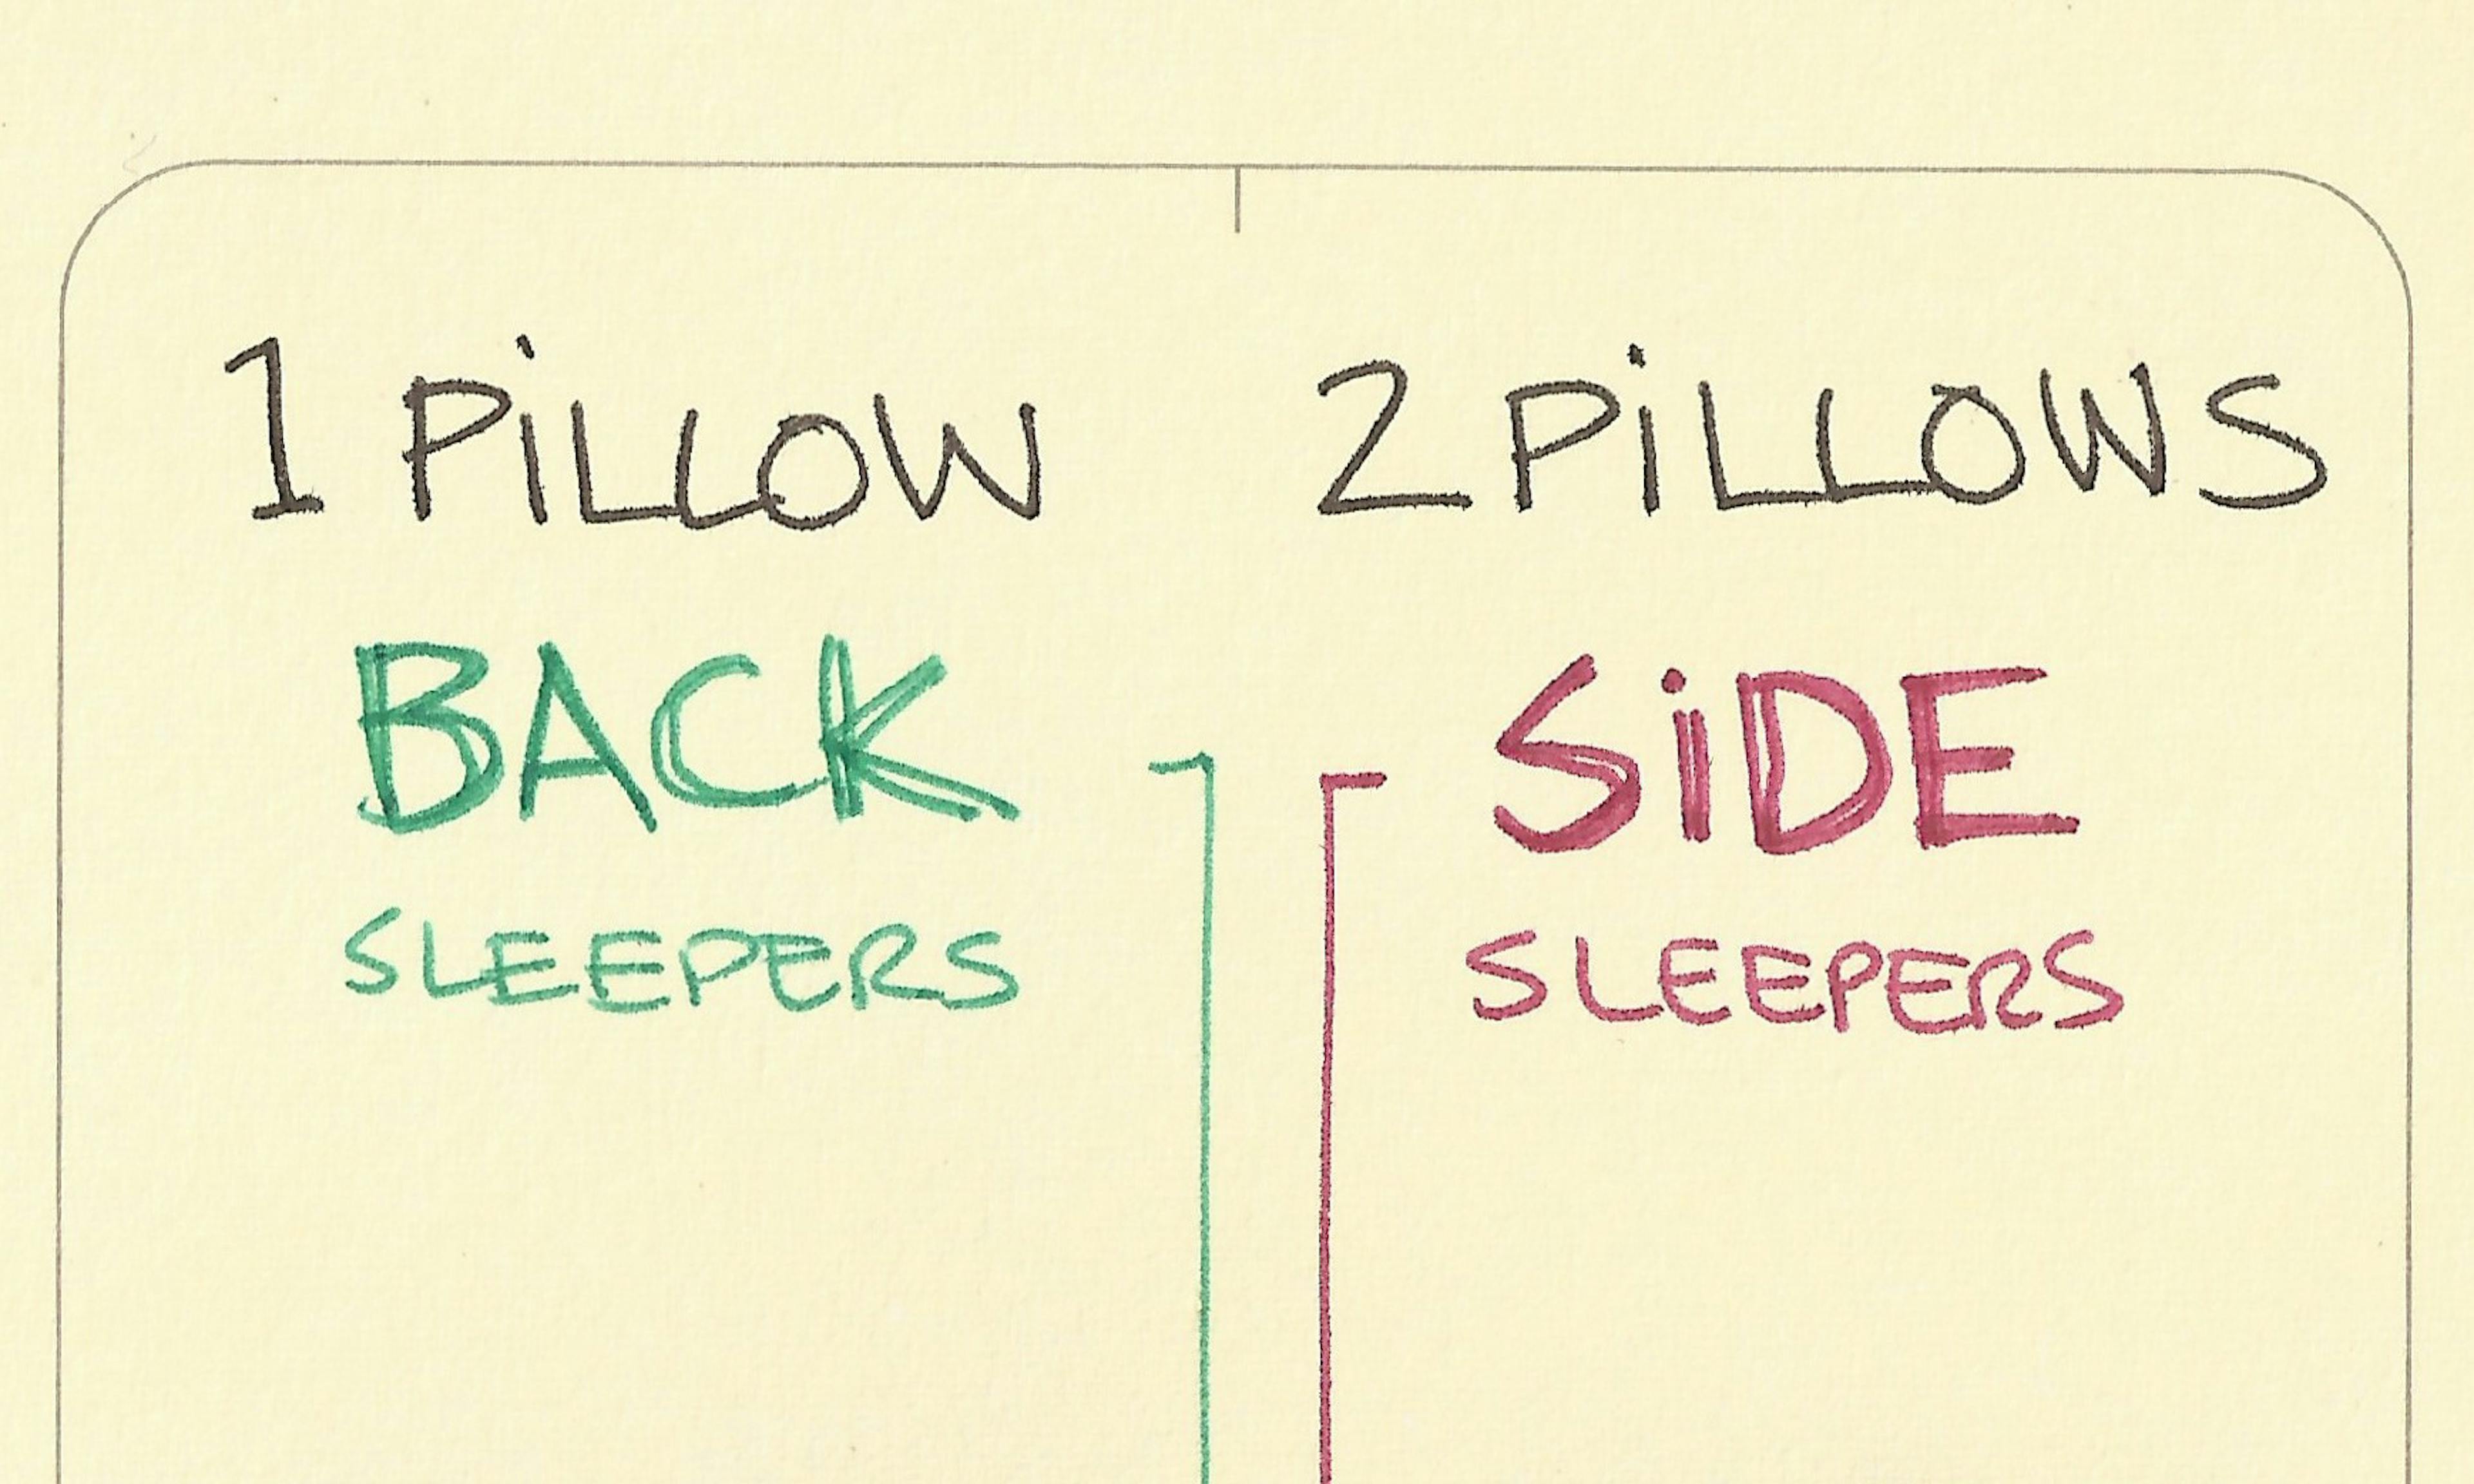 1 PiLLOW
BACK
SLEEPERS
2 PiLLOWS
SiDE
SLEEPERS